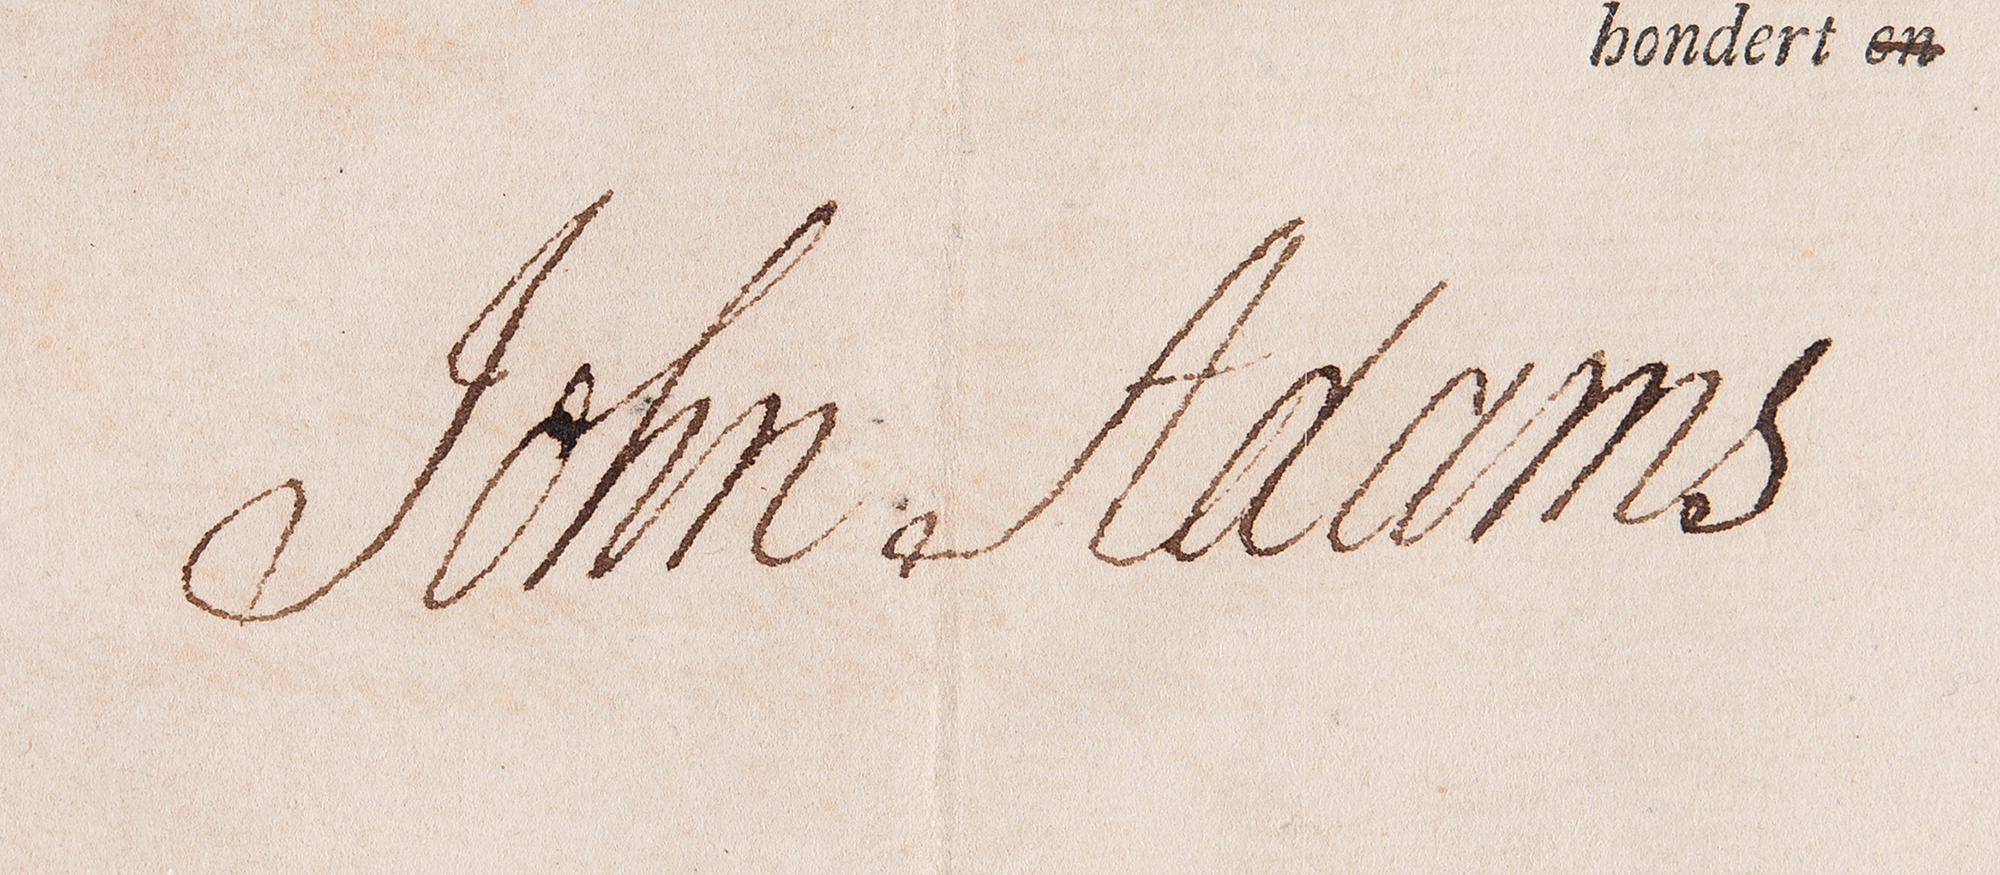 hondert en
John Adams